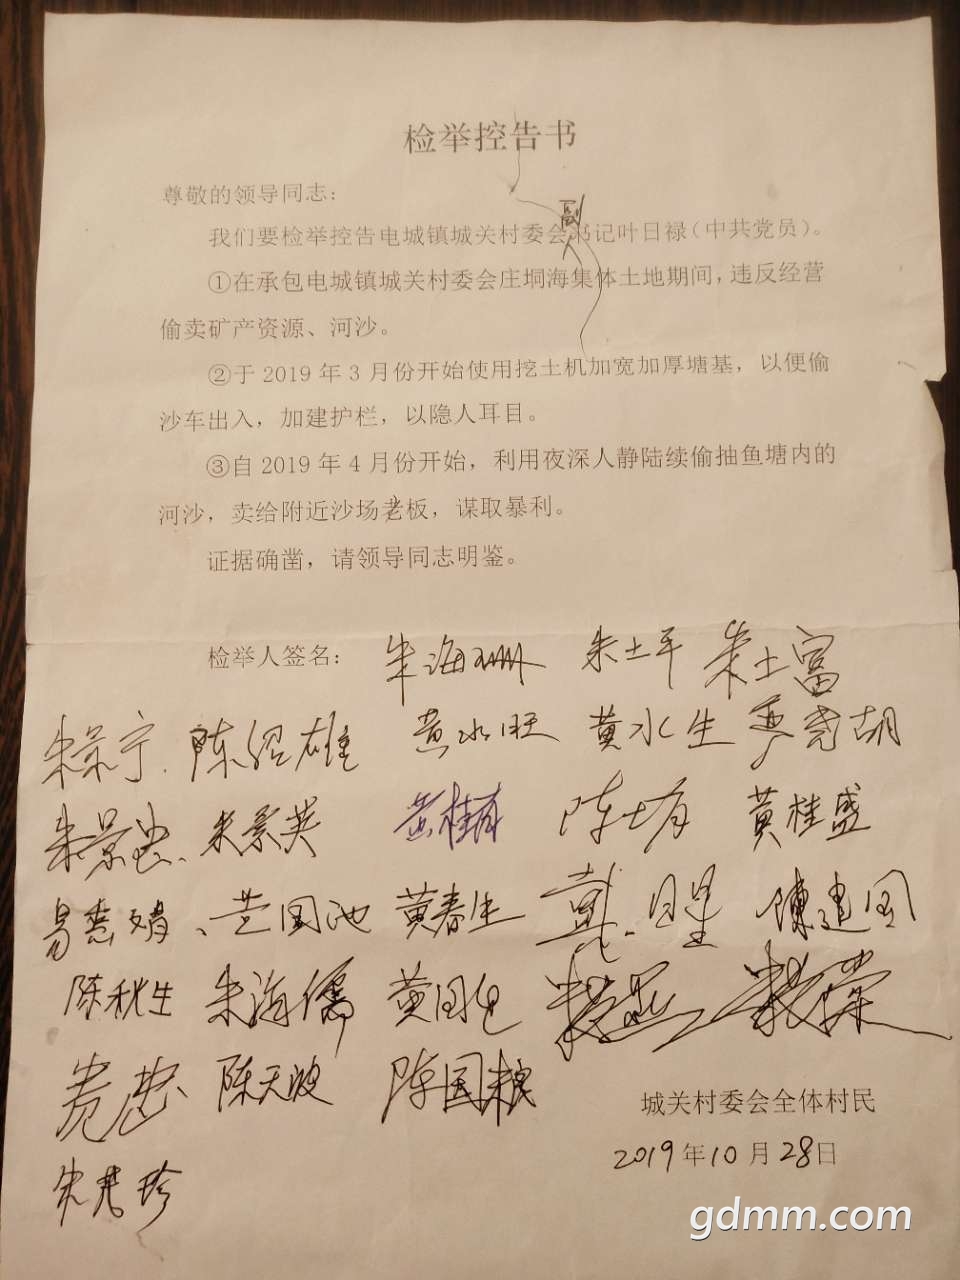 检举控告书
尊敬的领导同志：
副
我们要检举控告电城镇城关村委会书记叶日禄（中共党员）。
①在承包电城镇城关村委会庄垌海集体土地期间，违反经营
偷卖矿产资源、河沙。
②于 2019 年 3 月份开始使用挖土机加宽加厚塘基，以便偷
沙车出入，加建护栏，以隐人耳目。
③自 2019 年 4 月份开始，利用夜深人静陆续偷抽鱼塘内的
河沙，卖给附近沙场老板，谋取暴利。
证据确凿，请领导同志明鉴。
检举人签名： 朱海珊 朱土平 朱土富
朱荣宁 陈绍雄 黄水旺 黄水生
朱景忠 朱景英 黄桂有 陈土有 黄桂盛
国池 黄春生 戴日星 陳建国
陈秋生 朱海儒 黄国
陈天波 陈国粮
朱 珍
城关村委会全体村民
2019 年 10 月 28 日
gdmm.com